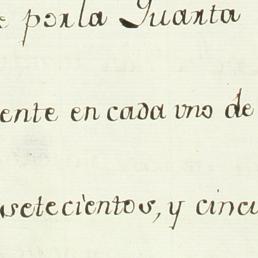 e por la Juanta
ente en cada uno de
setecientos, y cincu